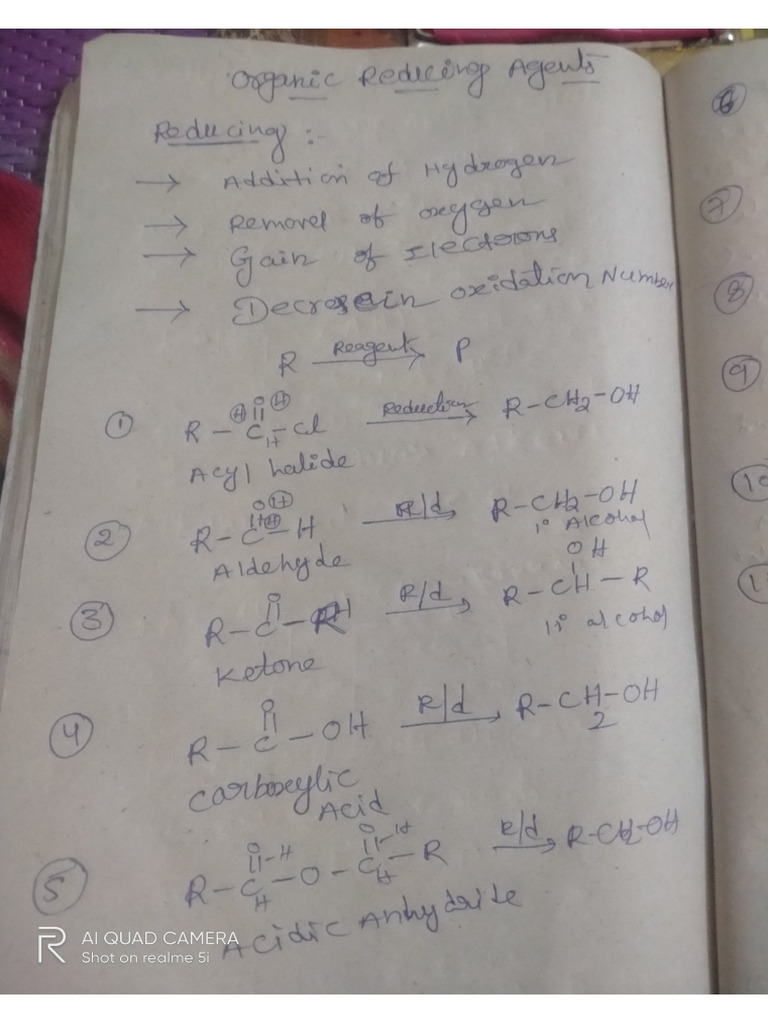 Organic Reducing Agents
Reducing :-
→ Addition of Hydrogen
→ Removel of oxygen
→ Gain of Electrons
→ Decrese in oxidation Number
R Reagent→ P
① R - C - Cl Reduction→ R-CH2-OH
O H H H
Acyl halide
② R - C - H R/d→ R-CH2-OH
O H H
Aldehyde 1° Alcohol
③ R - C - R R/d→ R - CH - R
O OH
Ketone 11° alcohol
④ R - C - OH R/d→ R-CH-OH
O 2
Carboxylic
Acid
⑤ R - C - O - C - R R/d→ R-CH2-OH
O H H O H H
Acidic Anhydrite
6
7
8
9
10
AI QUAD CAMERA
Shot on realme 5i